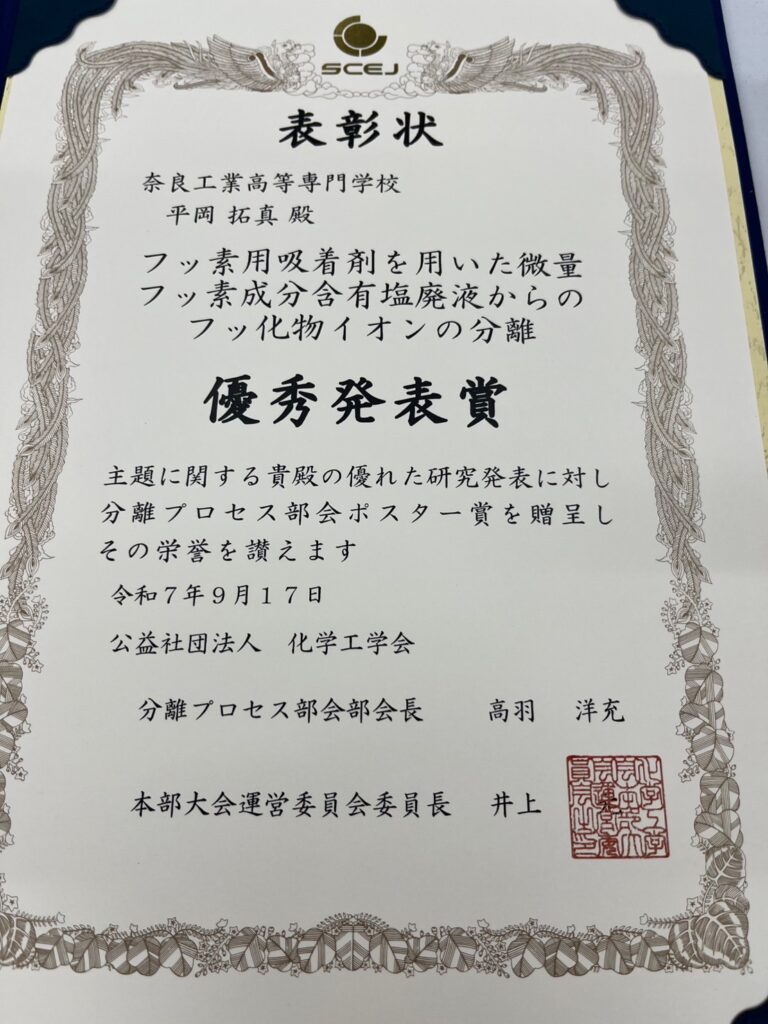 SCEJ
表彰状
奈良工業高等専門学校
平岡 拓真 殿
フッ素用吸着剤を用いた微量
フッ素成分含有塩廃液からの
フッ化物イオンの分離
優秀発表賞
主題に関する貴殿の優れた研究発表に対し
分離プロセス部会ポスター賞を贈呈し
その栄誉を讃えます
令和7年9月17日
公益社団法人 化学工学会
分離プロセス部会部会長 高羽 洋充
本部大会運営委員会委員長 井上